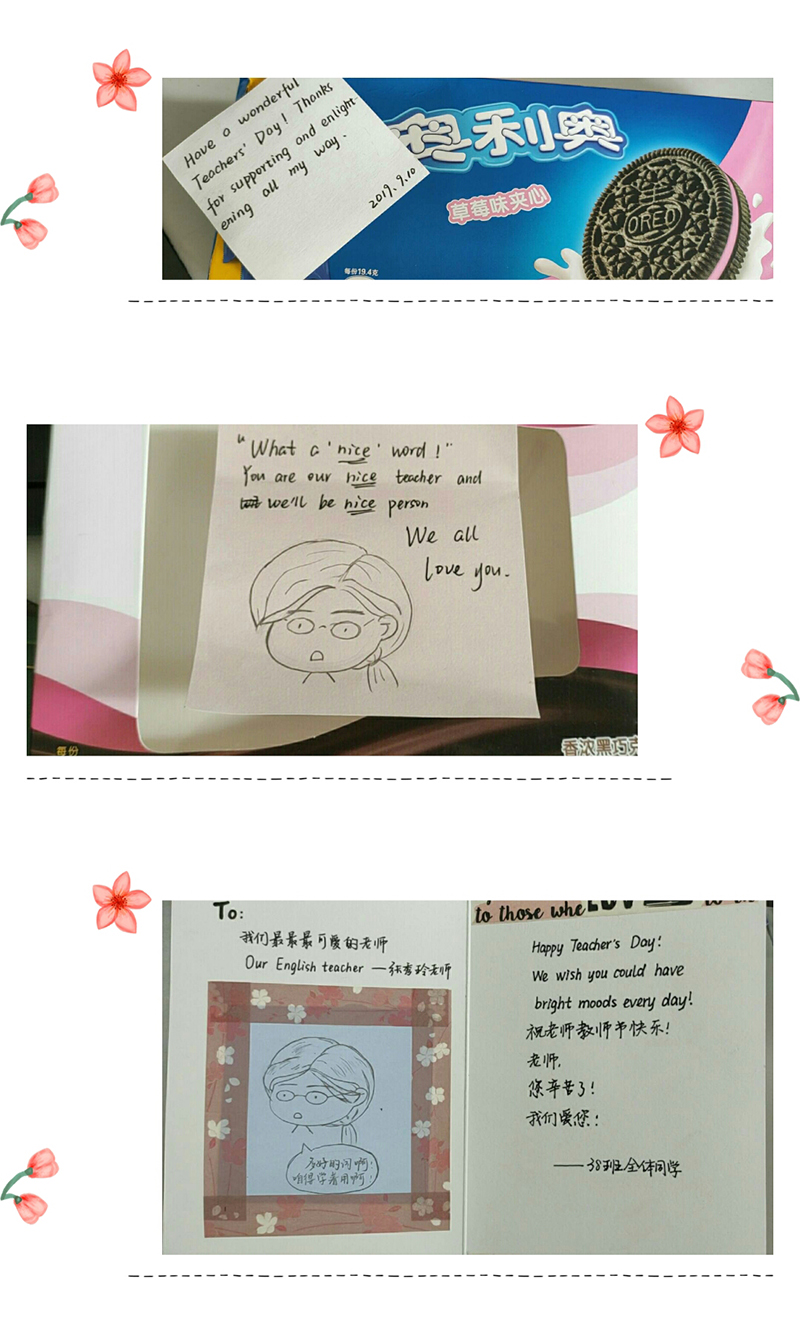 Have a wonderful
Teachers' Day! Thanks
for supporting and enlight-
ening all my way.
2019.9.10
奥利奥
草莓味夹心
OREO
每份19.4克
"What a 'nice' word!"
You are our nice teacher and
we'll be nice person
We all
love you.
每份
香浓黑巧克
To:
我们最最最可爱的老师
Our English teacher —张秀玲老师
多好的词啊!
咱得学着用啊!
to those who LOV
Happy Teacher's Day!
We wish you could have
bright moods every day!
祝老师教师节快乐!
老师,
您辛苦了!
我们爱您!
——38班全体同学